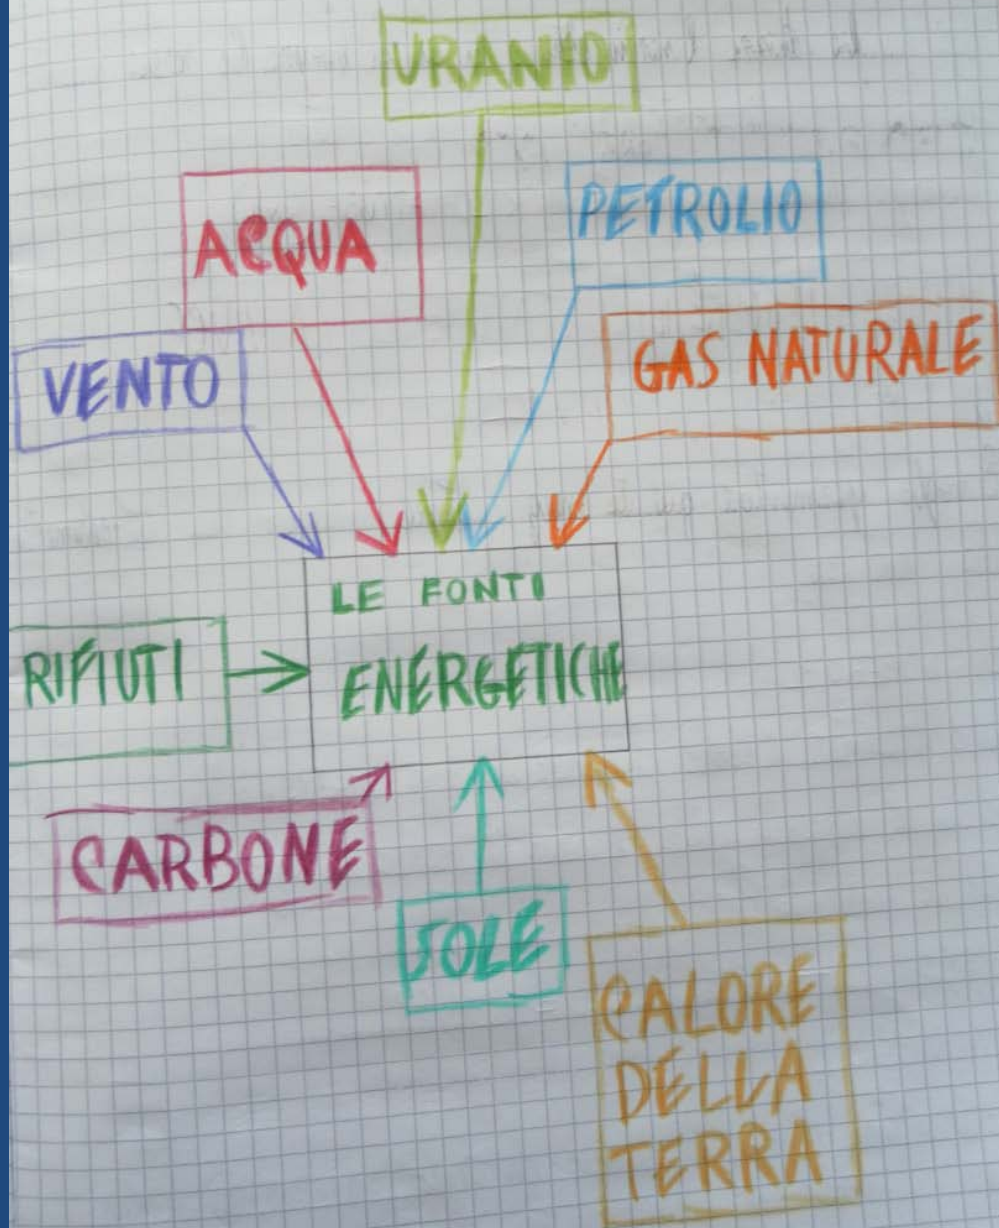 URANIO
ACQUA
PETROLIO
VENTO
GAS NATURALE
LE FONTI
ENERGETICHE
RIFIUTI
CARBONE
SOLE
CALORE
DELLA
TERRA